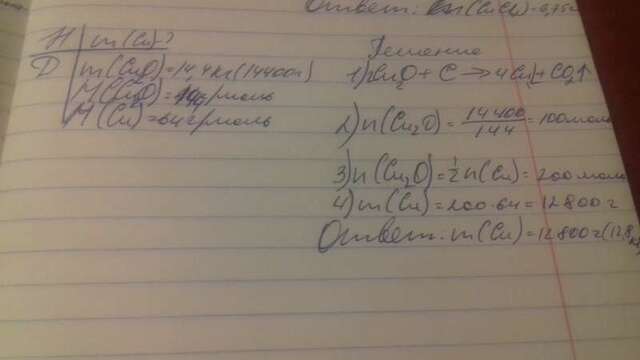 Ответ: m(CuCl₂)-0,75г
Н m(Cu)-?
Д m(Cu₂O)=14,4кг(14400г)
M(Cu₂O)=144г/моль
M(Cu)=64г/моль
Решение
1)2Cu₂O+C→4Cu+CO₂↑
2)n(Cu₂O)=14400/144=100моль
3)n(Cu₂O)=½n(Cu)=200моль
4)m(Cu)=200·64=12800г
Ответ: m(Cu)=12800г(12,8кг)